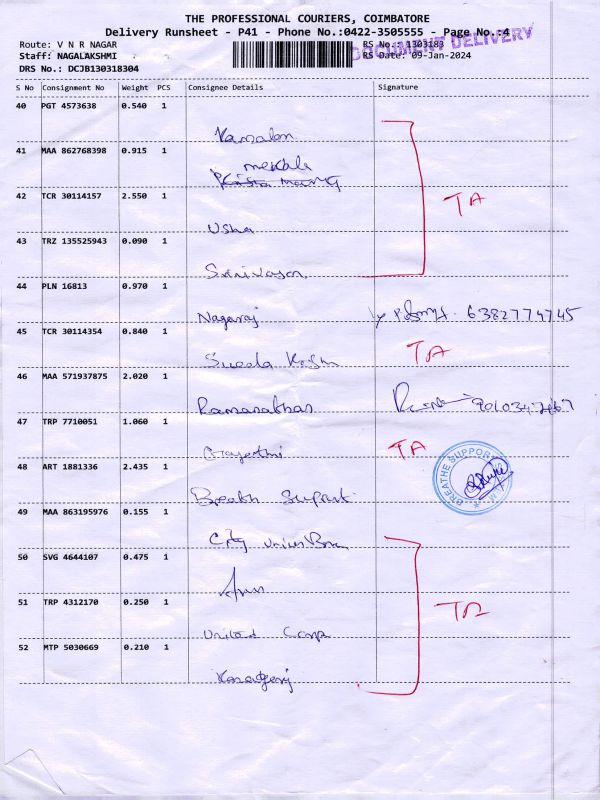 THE PROFESSIONAL COURIERS, COIMBATORE
Delivery Runsheet - P41 - Phone No.:0422-3505555 - Page No.:4
DOCUMENT DELIVERY
Route: V N R NAGAR RS No.: 1303183
Staff: NAGALAKSHMI RS Date: 09-Jan-2024
DRS No.: DCJB130318304
S No Consignment No Weight PCS Consignee Details Signature
40 PGT 4573638 0.540 1
41 MAA 862768398 0.915 1
42 TCR 30114157 2.550 1
TA
Usha
43 TRZ 135525943 0.090 1
Srinivasan
44 PLN 16813 0.970 1
Nagaraj 6382774745
45 TCR 30114354 0.840 1
TA
46 MAA 571937875 2.020 1
Ramanathan
47 TRP 7710051 1.060 1
TA
48 ART 1881336 2.435 1
BREATHE SUPPORT
Breath Support
49 MAA 863195976 0.155 1
City Union Bank
50 SVG 4644107 0.475 1
Arun
51 TRP 4312170 0.250 1
TA
United Corp
52 MTP 5030669 0.210 1